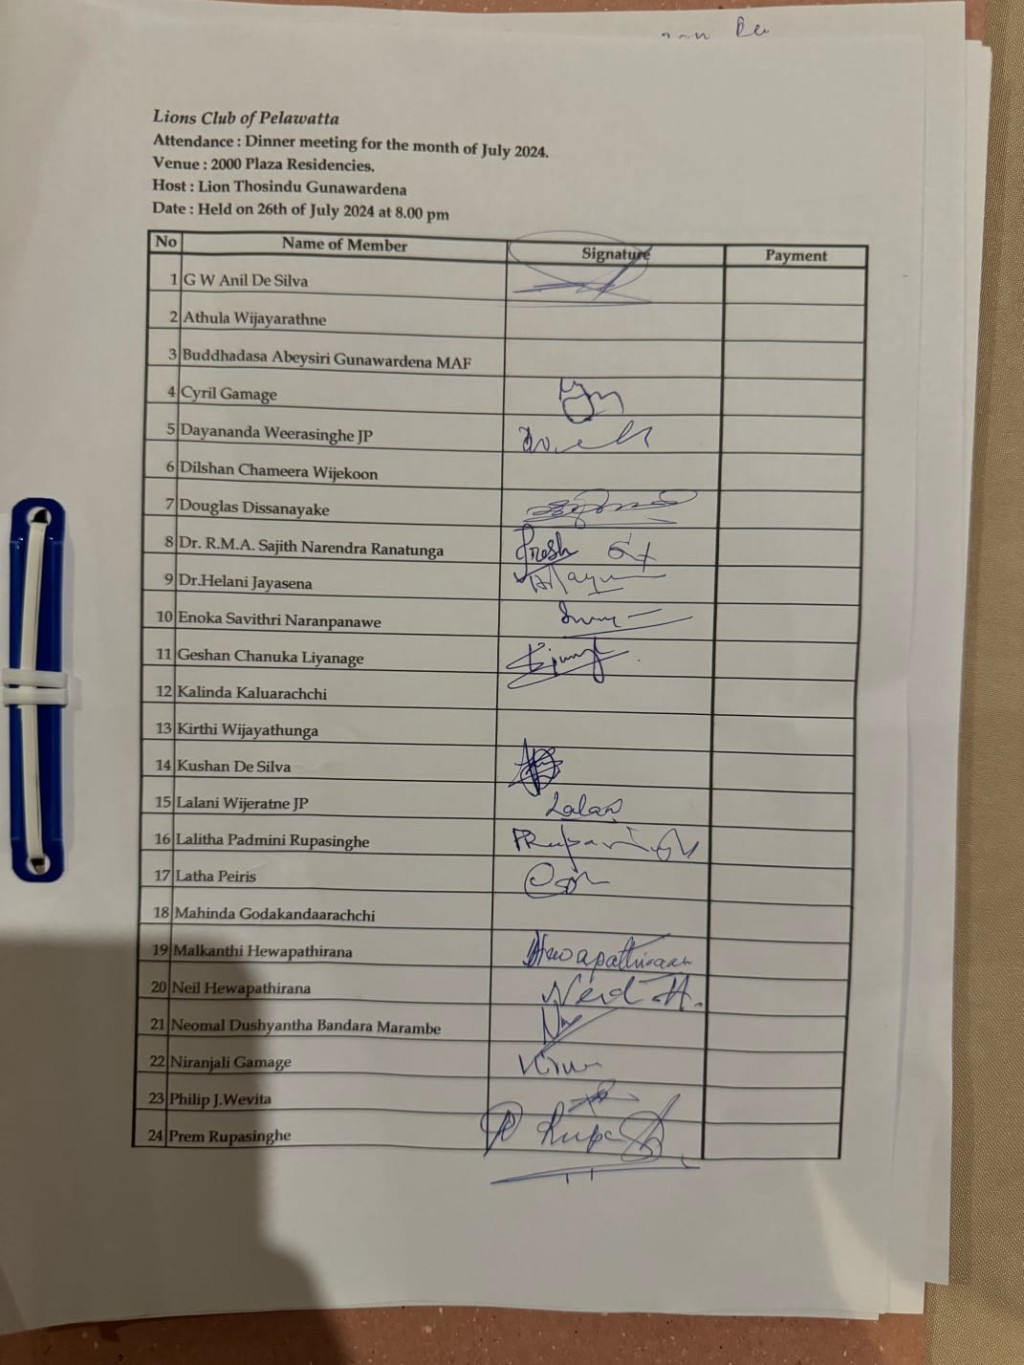 Lions Club of Pelawatta
Attendance : Dinner meeting for the month of July 2024.
Venue : 2000 Plaza Residencies.
Host : Lion Thosindu Gunawardena
Date : Held on 26th of July 2024 at 8.00 pm
No Name of Member Signature Payment
1 G W Anil De Silva
2 Athula Wijayarathne
3 Buddhadasa Abeysiri Gunawardena MAF
4 Cyril Gamage
5 Dayananda Weerasinghe JP
6 Dilshan Chameera Wijekoon
7 Douglas Dissanayake
8 Dr. R.M.A. Sajith Narendra Ranatunga
9 Dr.Helani Jayasena
10 Enoka Savithri Naranpanawe
11 Geshan Chanuka Liyanage
12 Kalinda Kaluarachchi
13 Kirthi Wijayathunga
14 Kushan De Silva
15 Lalani Wijeratne JP
16 Lalitha Padmini Rupasinghe
17 Latha Peiris
18 Mahinda Godakandaarachchi
19 Malkanthi Hewapathirana Hewapathirana
20 Neil Hewapathirana Neil H.
21 Neomal Dushyantha Bandara Marambe
22 Niranjali Gamage
23 Philip J.Wevita
24 Prem Rupasinghe